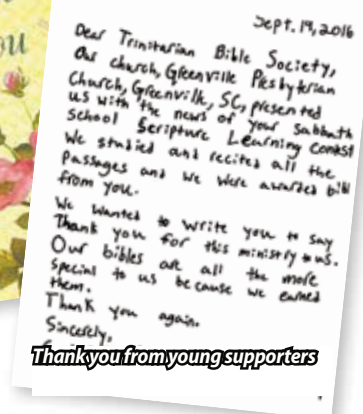 ou
Sept. 19, 2016
Dear Trinitarian Bible Society,
Our church, Greenville Presbyterian
Church, Greenville, SC, presented
us with the news of your Sabbath
School Scripture Learning contest
We studied and recited all the
passages and we were awarded bibl
from you.
We wanted to write you to say
Thank you for this ministry to us.
Our bibles are all the more
special to us because we earned
them.
Thank you again.
Sincerely,
Thank you from young supporters